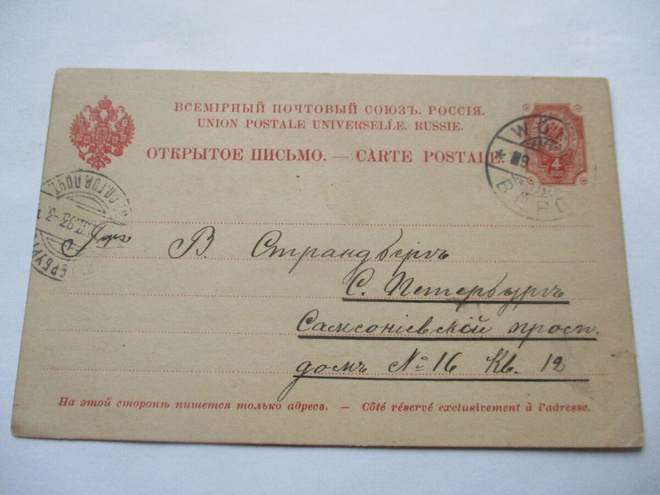 ВСЕМІРНЫЙ ПОЧТОВЫЙ СОЮЗЪ. РОССІЯ.
UNION POSTALE UNIVERSELLE. RUSSIE.
ОТКРЫТОЕ ПИСЬМО. — CARTE POSTALE.
4
В. Страндбергъ
С. Петербургъ
Самсоніевской просп.
домъ № 16 Кв. 12
На этой сторонѣ пишется только адресъ. — Côté réservé exclusivement à l'adresse.